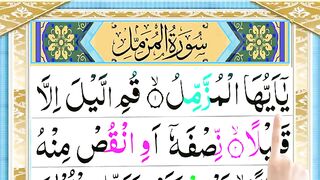 سُوْرَةُ الْمُزَّمِّل
يٰۤاَيُّهَا الْمُزَّمِّلُ ۝۱ قُمِ الَّيْلَ اِلَّا
قَلِيْلًا ۝۲ نِّصْفَهٗۤ اَوِ انْقُصْ مِنْهُ